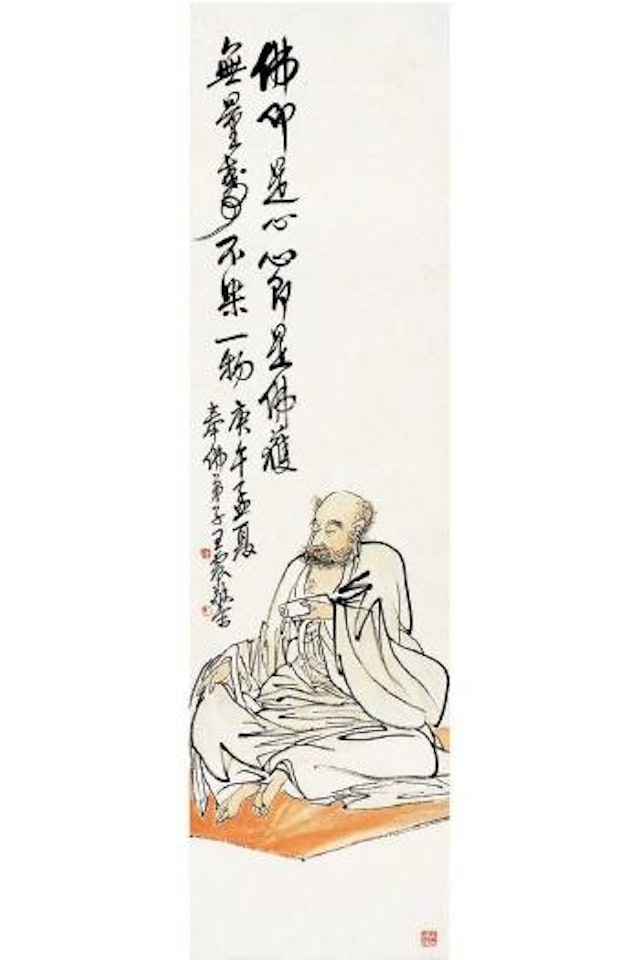 佛即是心心即是佛獲
無量壽不染一物
庚午孟夏
奉佛弟子王震敬